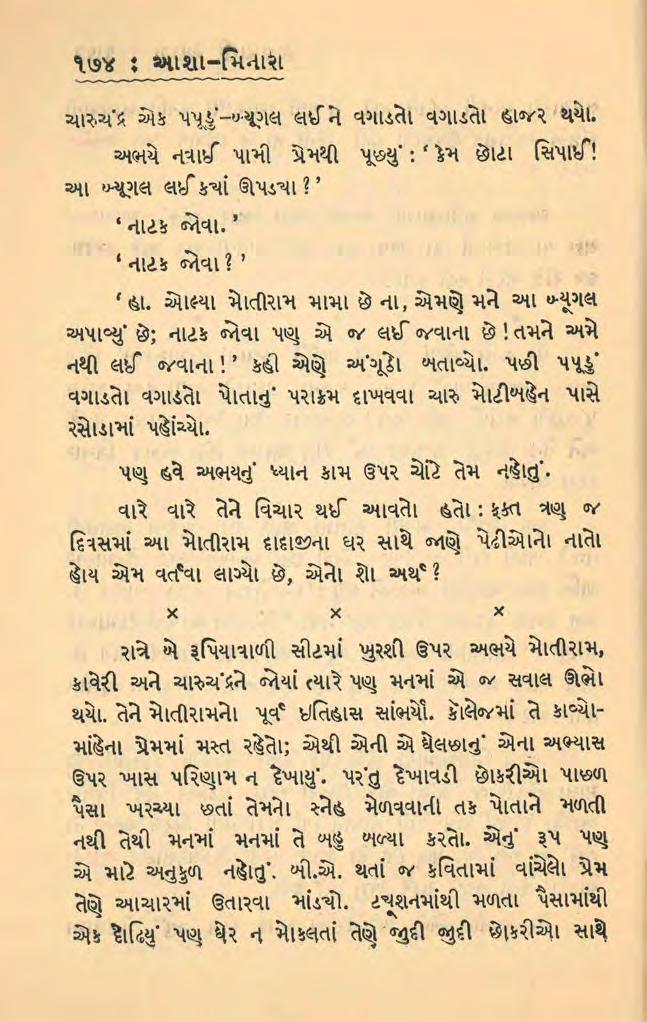 ૧૭૪ : આશા-મિનારા
ચારુચંદ્ર એક પપૂડું-બ્યૂગલ લઈને વગાડતો વગાડતો હાજર થયો.
અભયે નવાઈ પામી પ્રેમથી પૂછ્યું : ‘ કેમ છોટા સિપાઈ!
આ બ્યૂગલ લઈ કયાં ઊપડયા ? ’
‘ નાટક જોવા. ’
‘ નાટક જોવા ? ’
‘ હા. ઓલ્યા મોતીરામ મામા છે ના, એમણે મને આ બ્યૂગલ
અપાવ્યું છે; નાટક જોવા પણ એ જ લઈ જવાના છે ! તમને અમે
નથી લઈ જવાના ! ’ કહી એણે અંગૂઠો બતાવ્યો. પછી પપૂડું
વગાડતો વગાડતો પોતાનું પરાક્રમ દાખવવા ચારુ મોટીબહેન પાસે
રસોડામાં પહોંચ્યો.
પણ હવે અભયનું ધ્યાન કામ ઉપર ચોંટે તેમ નહોતું.
વારે વારે તેને વિચાર થઈ આવતો હતો : ફક્ત ત્રણ જ
દિવસમાં આ મોતીરામ દાદાજીના ઘર સાથે જાણે પેઢીઓનો નાતો
હોય એમ વર્તવા લાગ્યો છે, એનો શો અર્થ ?
× × ×
રાત્રે બે રૂપિયાવાળી સીટમાં ખુરશી ઉપર અભયે મોતીરામ,
કાવેરી અને ચારુચંદ્રને જોયાં ત્યારે પણ મનમાં એ જ સવાલ ઊભો
થયો. તેને મોતીરામનો પૂર્વ ઇતિહાસ સાંભર્યો. કૉલેજમાં તે કાવ્યો-
માંહેના પ્રેમમાં મસ્ત રહેતો; એથી એની એ ઘેલછાનું એના અભ્યાસ
ઉપર ખાસ પરિણામ ન દેખાયું. પરંતુ દેખાવડી છોકરીઓ પાછળ
પૈસા ખરચ્યા છતાં તેમનો સ્નેહ મેળવવાની તક પોતાને મળતી
નથી તેથી મનમાં મનમાં તે બહુ બળ્યા કરતો. એનું રૂપ પણ
એ માટે અનુકુળ નહોતું. બી.એ. થતાં જ કવિતામાં વાંચેલો પ્રેમ
તેણે આચારમાં ઉતારવા માંડયો. ટ્યૂશનમાંથી મળતા પૈસામાંથી
એક દોઢિયું પણ ઘેર ન મોકલતાં તેણે જુદી જુદી છોકરીઓ સાથે